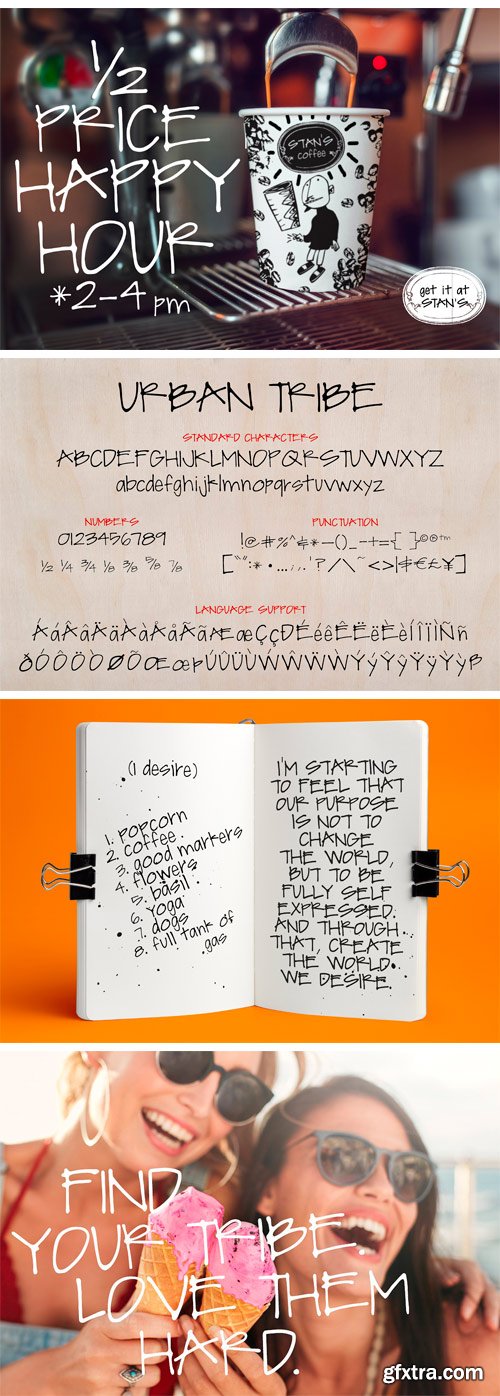 ½
PRICE
HAPPY
HOUR
*2-4 pm
STAN'S
coffee
get it at
STAN'S
URBAN TRIBE
STANDARD CHARACTERS
ABCDEFGHIJKLMNOPQRSTUVWXYZ
abcdefghijklmnopqrstuvwxyz
NUMBERS
0123456789
½ ¼ ¾ ⅛ ⅜ ⅝ ⅞
PUNCTUATION
!@#%^&*—()_-+={ }©®™
LANGUAGE SUPPORT
(I desire)
1. popcorn
2. coffee
3. good markers
4. flowers
5. basil
6. yoga
7. dogs
8. full tank of
gas
I'M STARTING
TO FEEL THAT
OUR PURPOSE
IS NOT TO
CHANGE
THE WORLD,
BUT TO BE
FULLY SELF
EXPRESSED.
AND THROUGH
THAT, CREATE
THE WORLD
WE DESIRE.
FIND
YOUR TRIBE.
LOVE THEM
HARD.
gfxtra.com